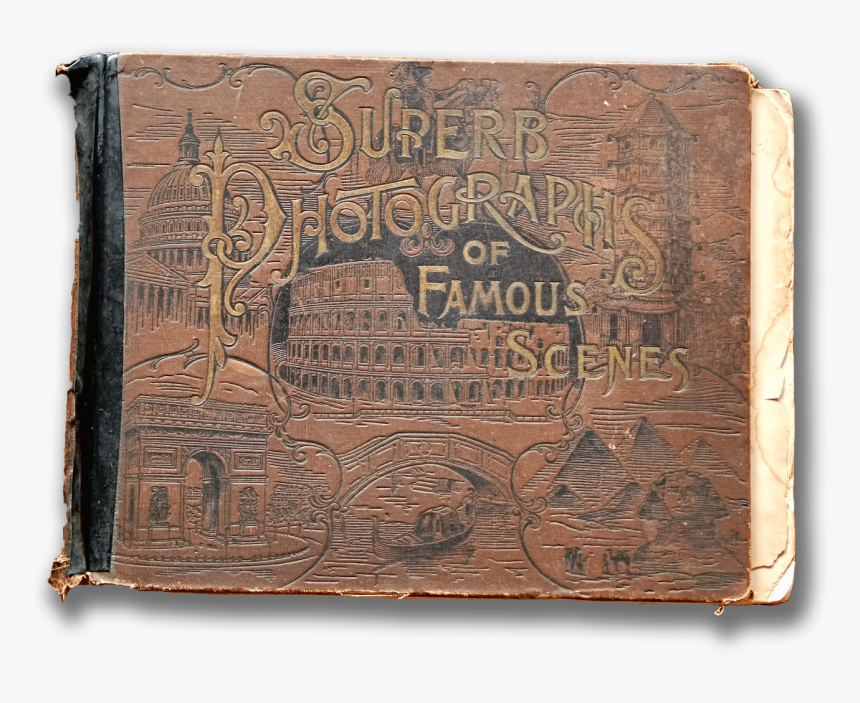 SUPERB
PHOTOGRAPHS
OF
FAMOUS
SCENES